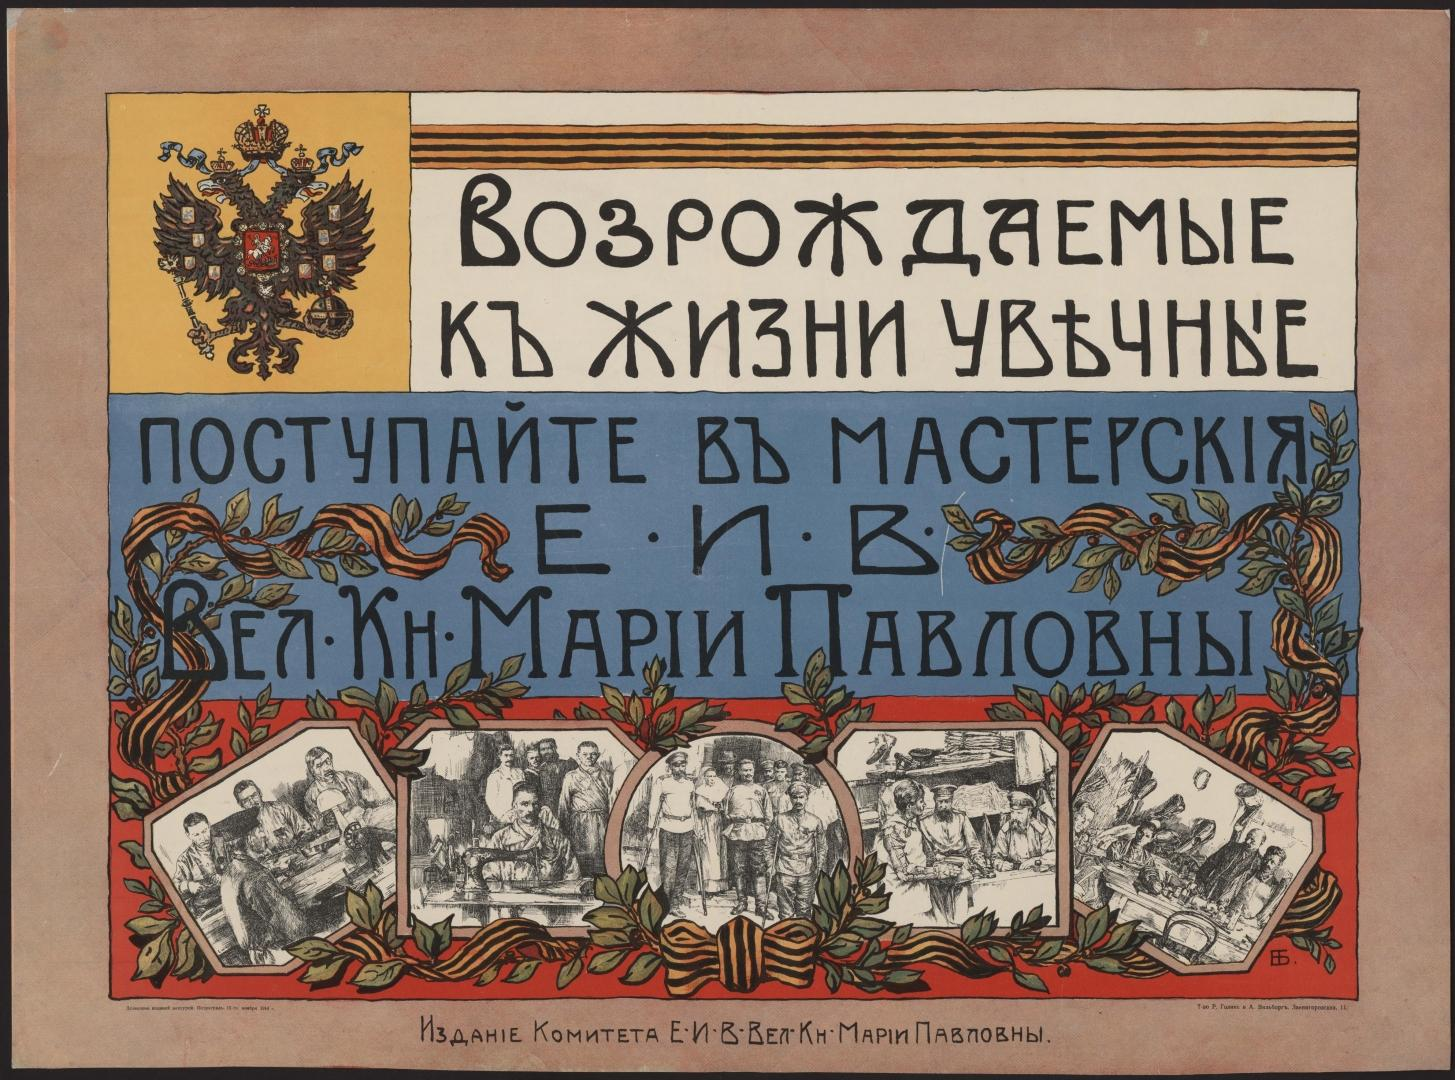 Возрождаемые
къ жизни увѣчные
поступайте въ мастерскія
Е. И. В.
Вел. Кн. Маріи Павловны
Дозволено военной цензурой. Петроградъ, 15-го ноября 1914 г.
Т-во Р. Голике и А. Вильборгъ. Звенигородская, 11.
Изданіе Комитета Е. И. В. Вел. Кн. Маріи Павловны.